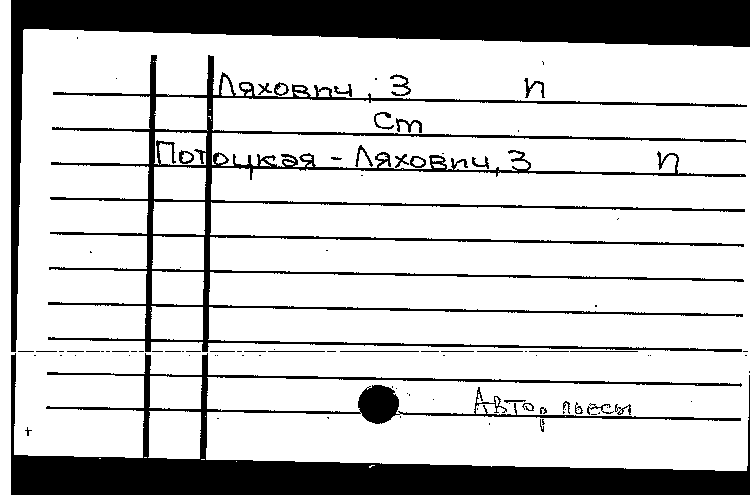 Ляхович, З п
Ст
Потоцкая - Ляхович, З п
Автор пьесы